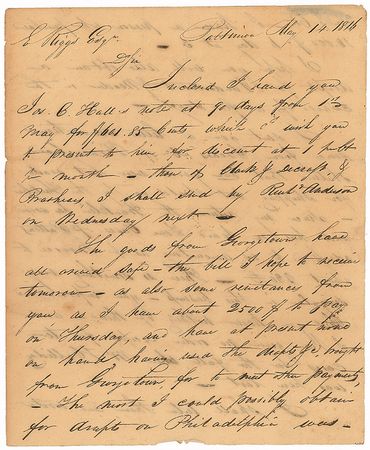 E Riggs Esqr Baltimore May 14. 1816
D Sir
Inclosed I hand you
Jos. C. Hall's note at 90 days from 1st
May for $601.85 Cents which I wish you
to present to him for discount at 1 pr Ct
pr month – then of Clark &
I shall send by Anderson
on Wednesday next –
The goods from Georgetown have
all arrived safe – the bill I hope to receive
tomorow – as also some remitances from
you as I have about 2500 $ to pay
on Thursday, and have at present none
on hand, having used the drafts &c, brought
from Georgetown, for to meet other payments,
– The most I could possibly obtain
for drafts on Philadelphia was –